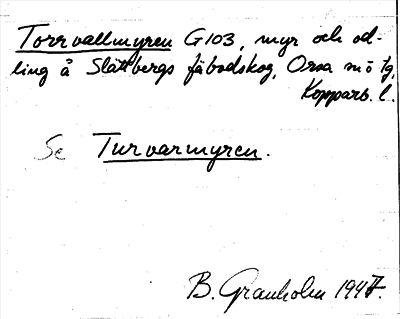 Torrvallmyren G103, myr och od-
ling å Slättbergs fäbodskog, Orsa
Kopparb. l.
Se Turvarmyren.
B. Granholm 1947.